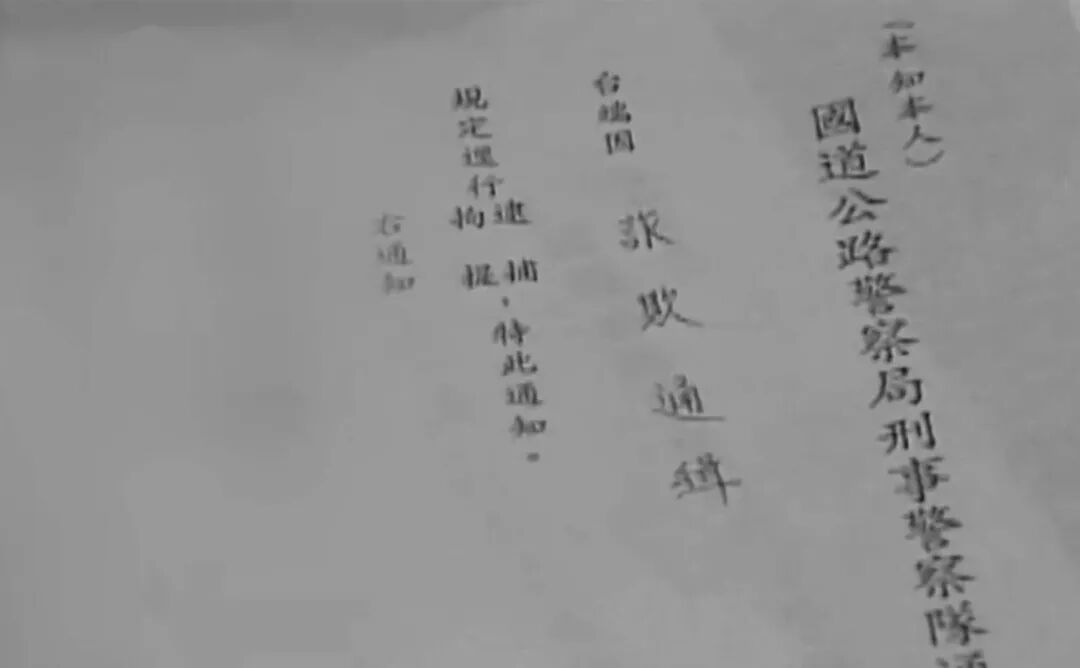 （本知本人）
國道公路警察局刑事警察隊通
台端因 詐欺通緝
規定逕行拘提
逮捕，特此通知。
右通知